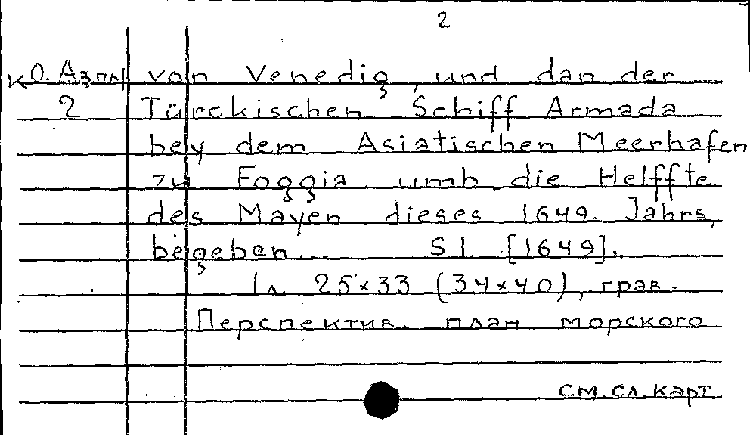 2
К О. Азпы von Venedig, und dan der
2 Türckischen Schiff Armada
bey dem Asiatischen Meerhafen
zu Foggia, umb die Helffte
des Mayen dieses 1649. Jahrs,
begeben... S.l. [1649].
1л. 25×33 (34×40), грав.
Перспектив. план морского
см. сл. карт.